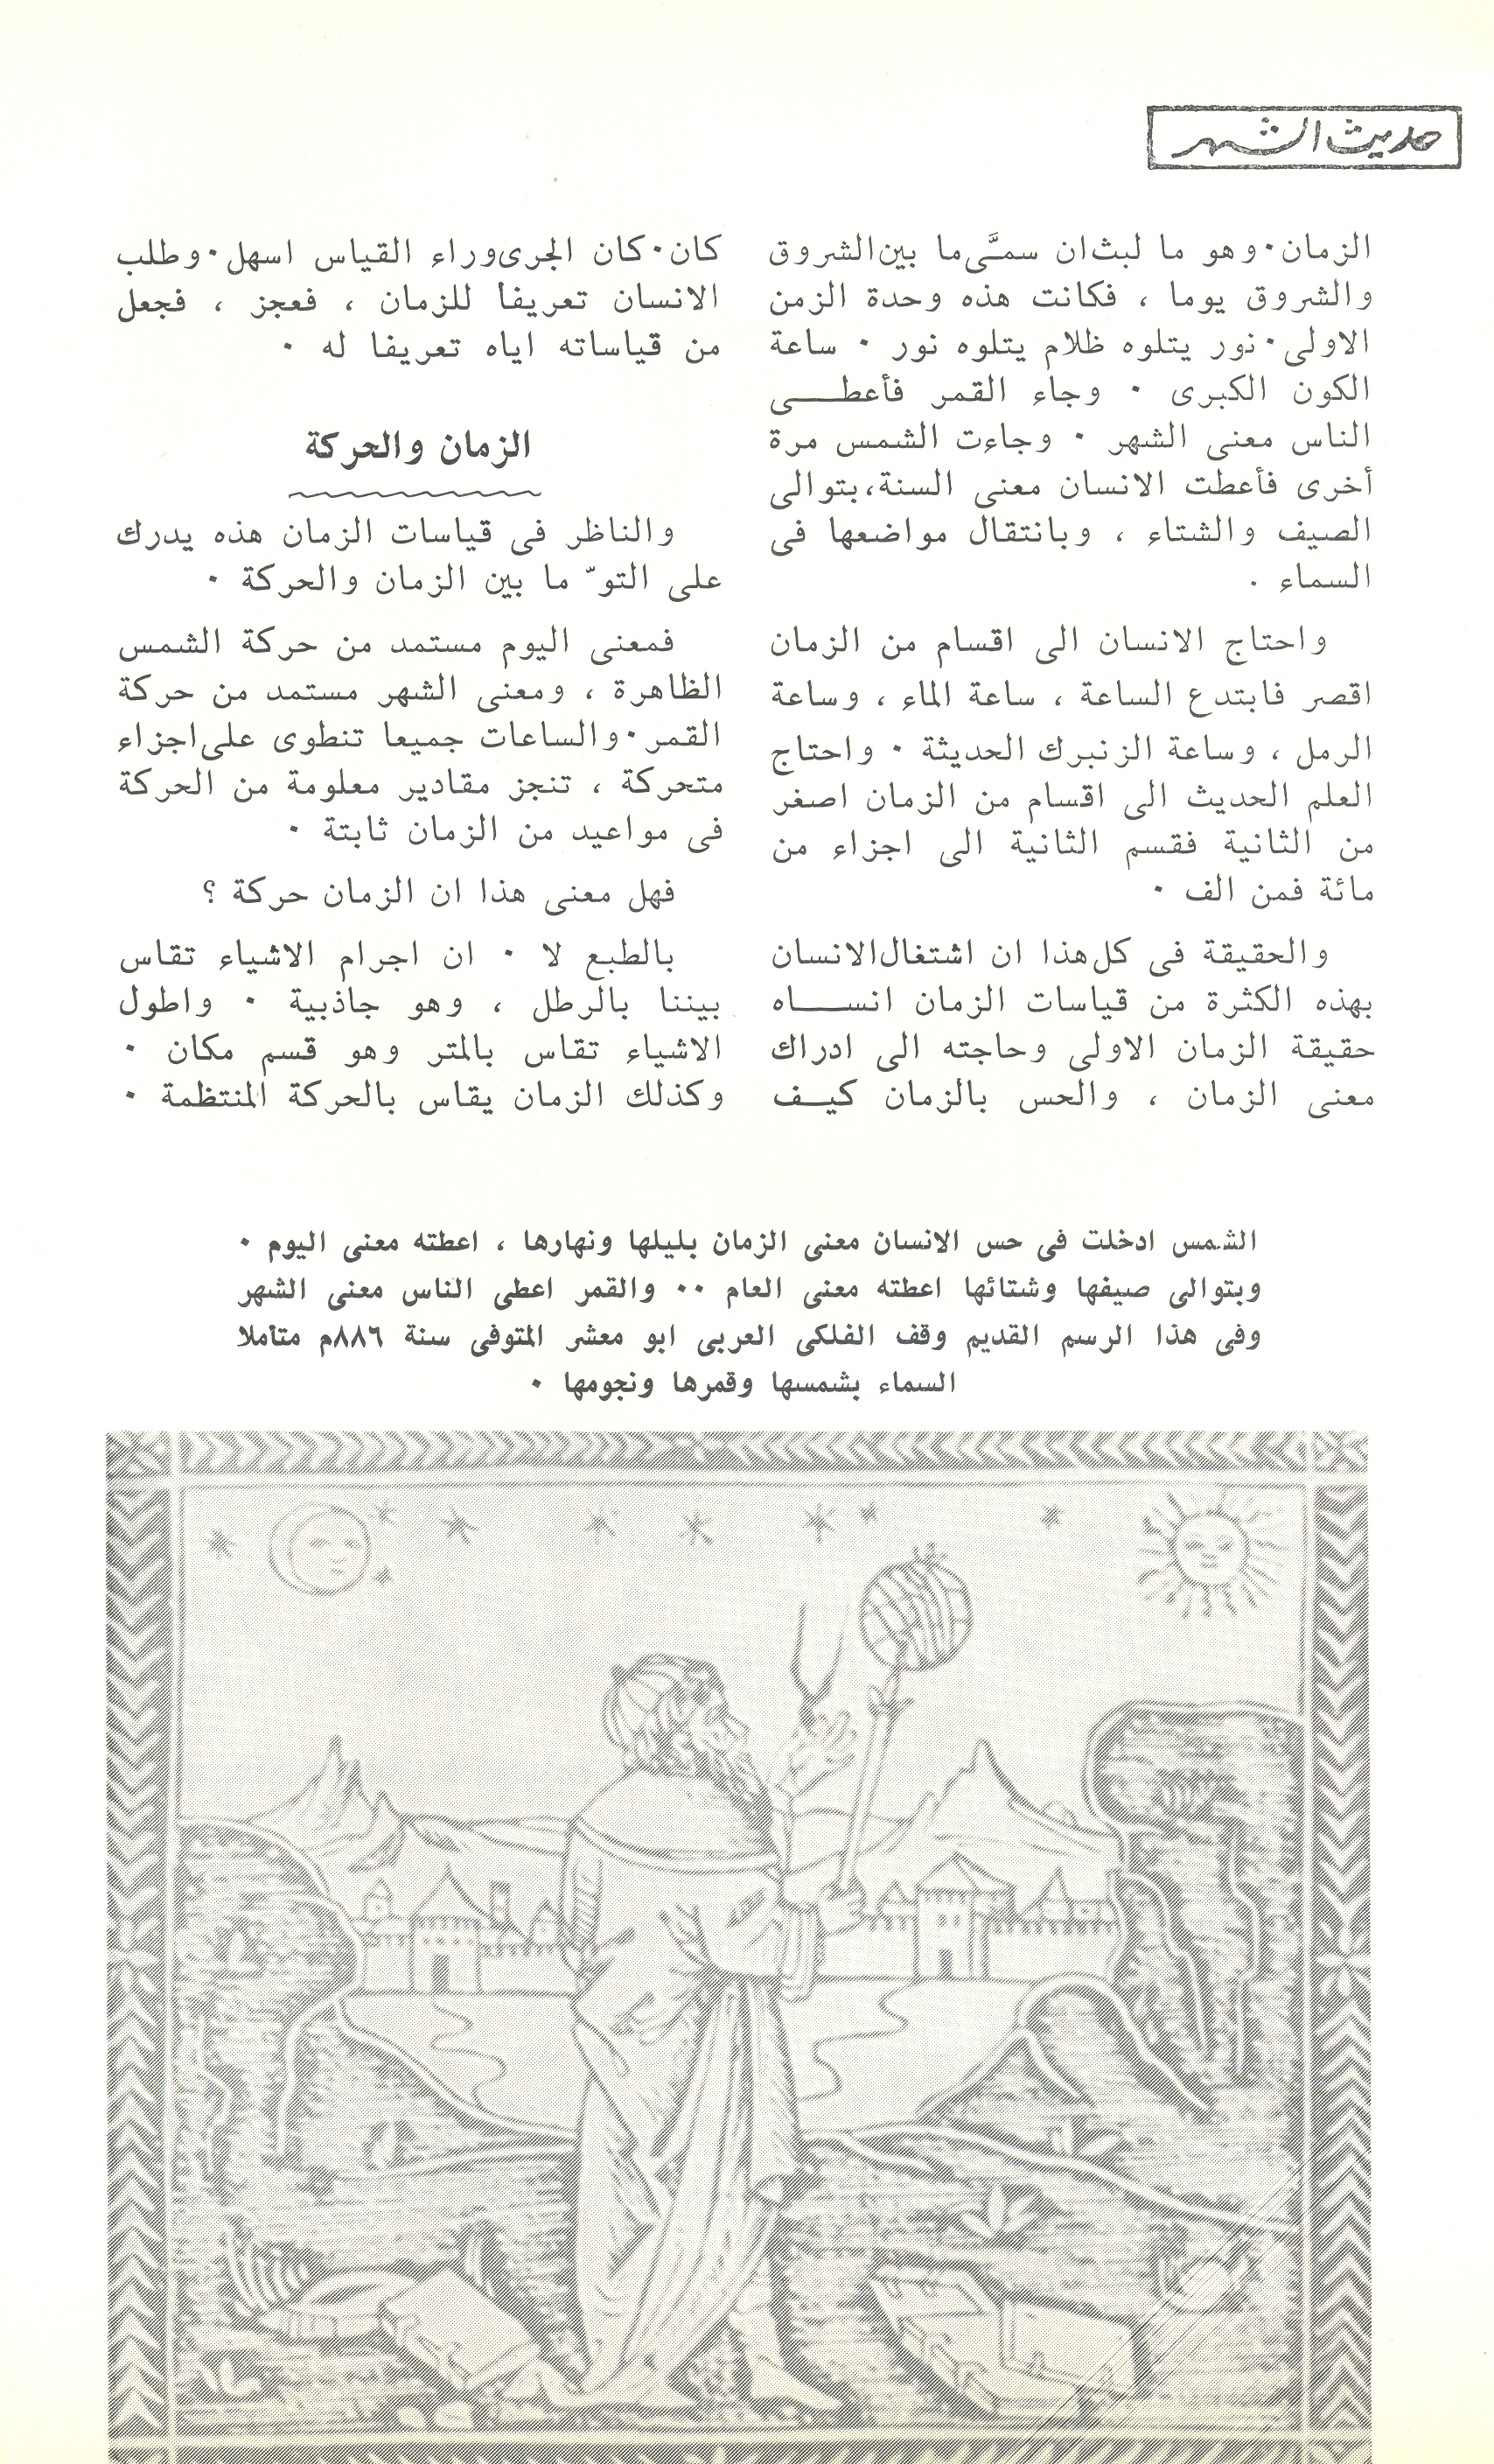 حديث الشهر
الزمان · وهو ما لبث ان سمَّى ما بين الشروق
والشروق يوما ، فكانت هذه وحدة الزمن
الاولى · نور يتلوه ظلام يتلوه نور · ساعة
الكون الكبرى · وجاء القمر فأعطــــى
الناس معنى الشهر · وجاءت الشمس مرة
أخرى فأعطت الانسان معنى السنة، بتوالى
الصيف والشتاء ، وبانتقال مواضعها فى
السماء .
واحتاج الانسان الى اقسام من الزمان
اقصر فابتدع الساعة ، ساعة الماء ، وساعة
الرمل ، وساعة الزنبرك الحديثة · واحتاج
العلم الحديث الى اقسام من الزمان اصغر
من الثانية فقسم الثانية الى اجزاء من
مائة فمن الف ·
والحقيقة فى كل هذا ان اشتغال الانسان
بهذه الكثرة من قياسات الزمان انســـاه
حقيقة الزمان الاولى وحاجته الى ادراك
معنى الزمان ، والحس بالزمان كيــف
كان · كان الجرى وراء القياس اسهل · وطلب
الانسان تعريفا للزمان ، فعجز ، فجعل
من قياساته اياه تعريفا له ·
الزمان والحركة
والناظر فى قياسات الزمان هذه يدرك
على التوّ ما بين الزمان والحركة ·
فمعنى اليوم مستمد من حركة الشمس
الظاهرة ، ومعنى الشهر مستمد من حركة
القمر · والساعات جميعا تنطوى على اجزاء
متحركة ، تنجز مقادير معلومة من الحركة
فى مواعيد من الزمان ثابتة ·
فهل معنى هذا ان الزمان حركة ؟
بالطبع لا · ان اجرام الاشياء تقاس
بيننا بالرطل ، وهو جاذبية · واطول
الاشياء تقاس بالمتر وهو قسم مكان ·
وكذلك الزمان يقاس بالحركة المنتظمة ·
الشمس ادخلت فى حس الانسان معنى الزمان بليلها ونهارها ، اعطته معنى اليوم ·
وبتوالى صيفها وشتائها اعطته معنى العام ·· والقمر اعطى الناس معنى الشهر
وفى هذا الرسم القديم وقف الفلكى العربى ابو معشر المتوفى سنة ٨٨٦م متأملا
السماء بشمسها وقمرها ونجومها ·